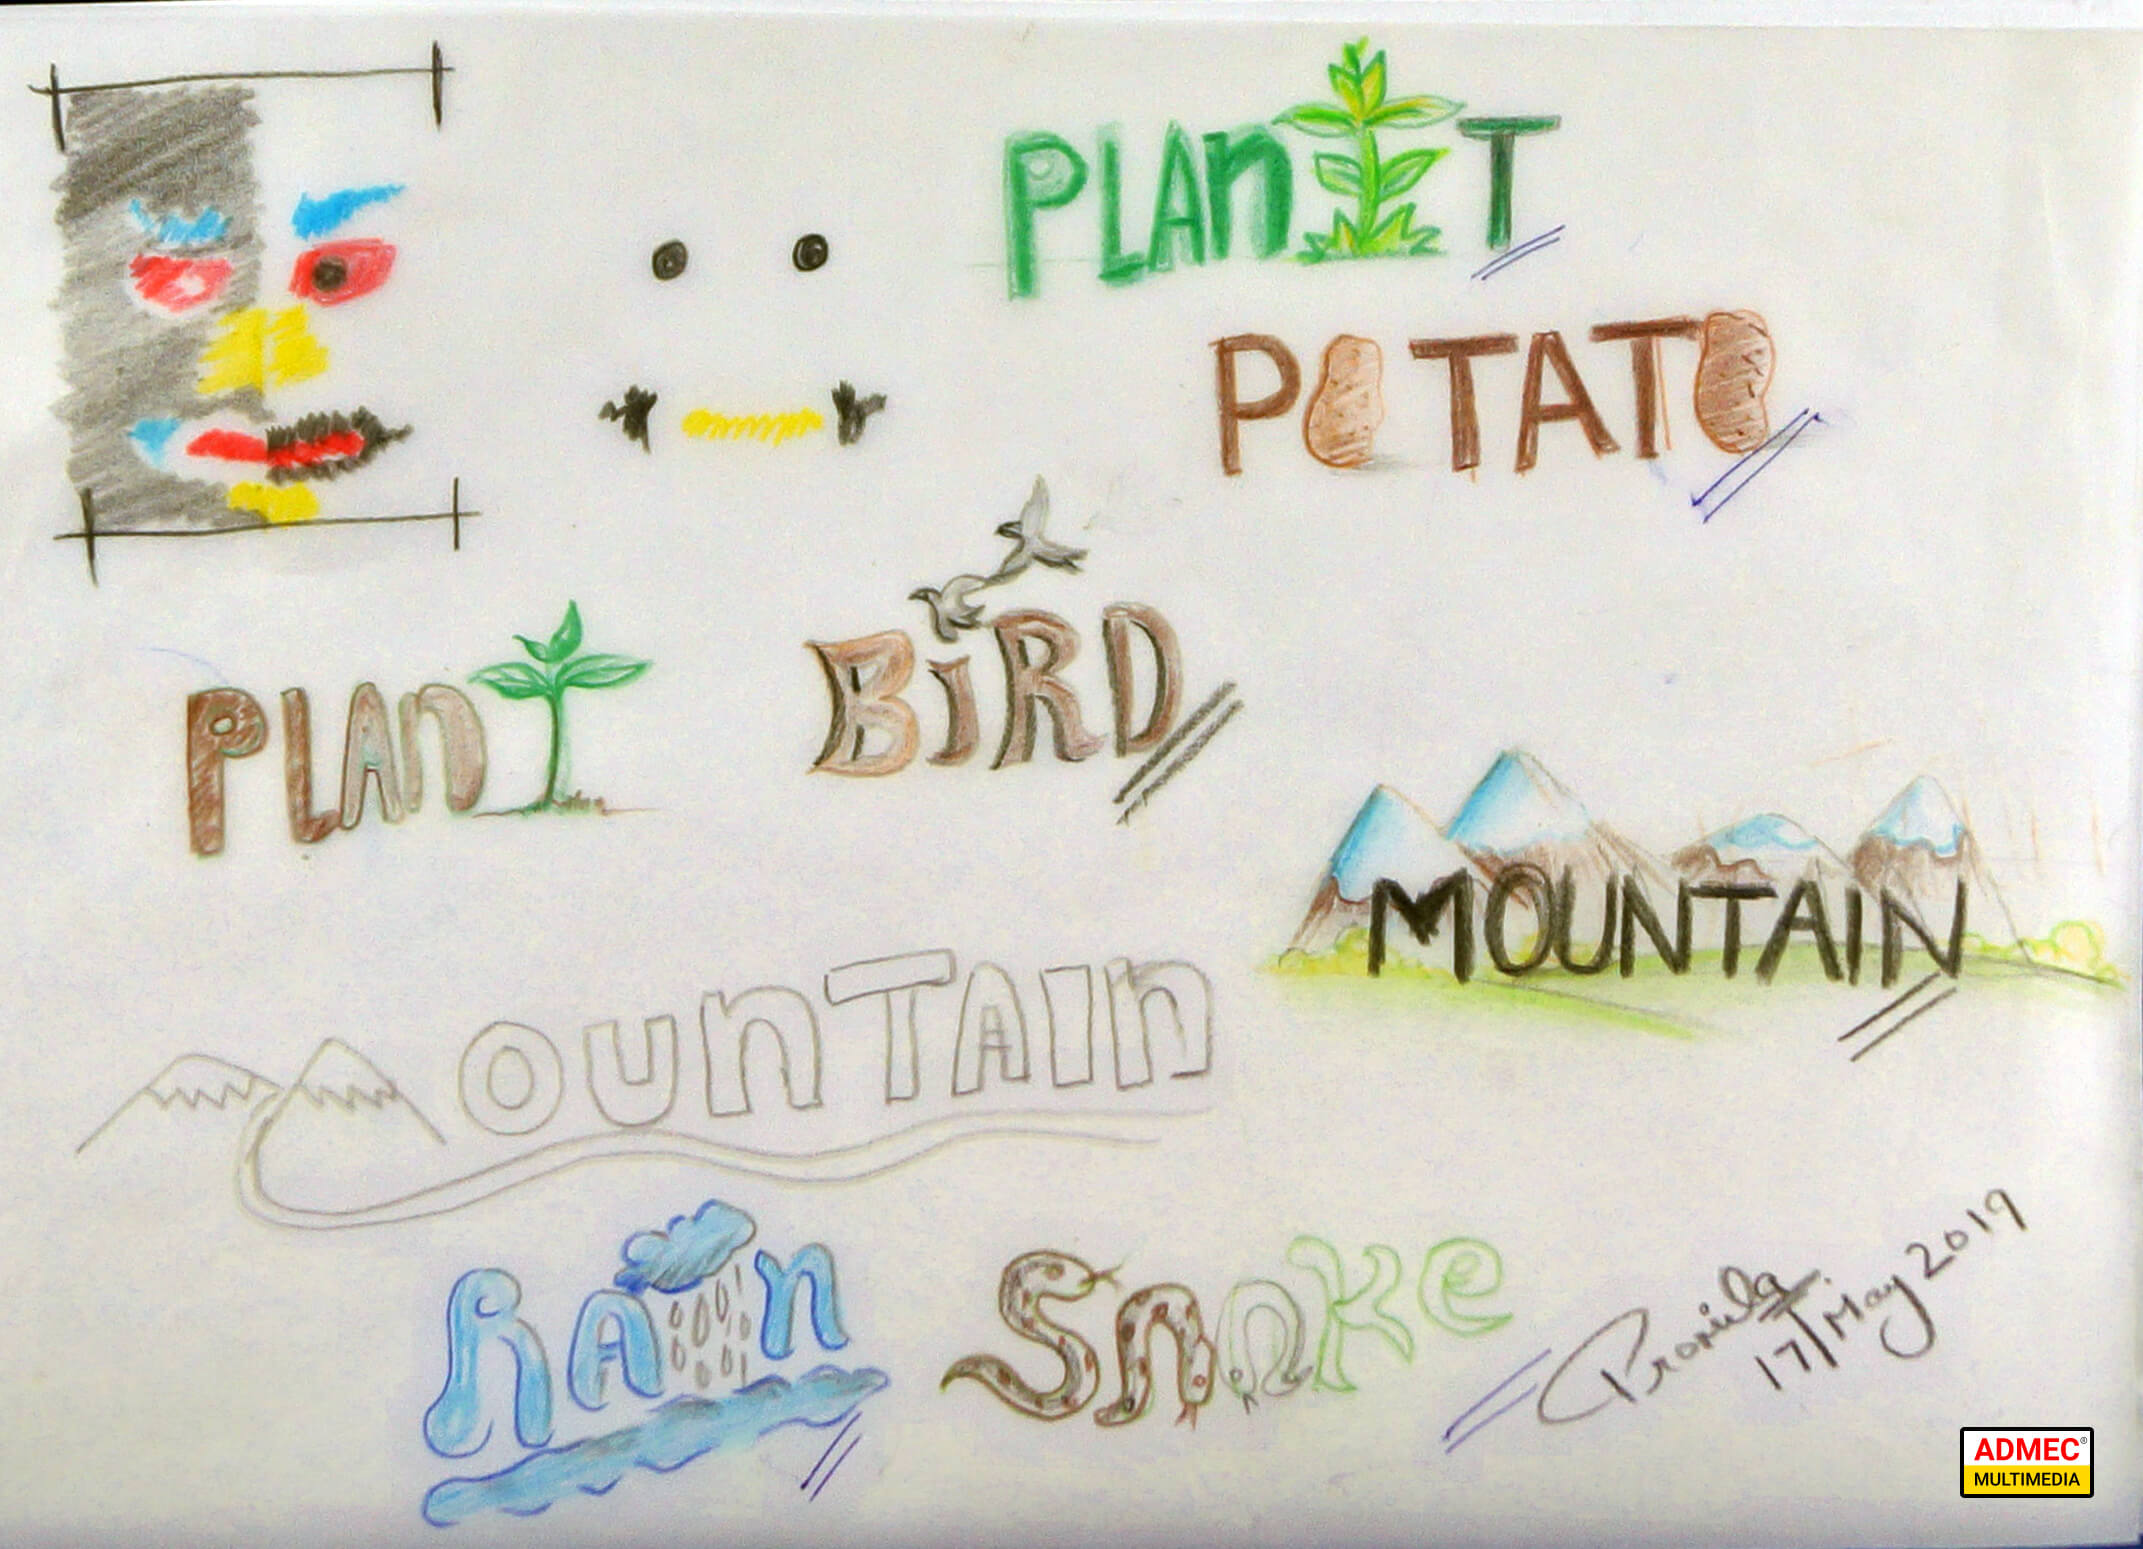 PLANT
POTATO
BIRD
PLANT
MOUNTAIN
MOUNTAIN
RAIN
SNAKE
Promila
17/May 2019
ADMEC®
MULTIMEDIA